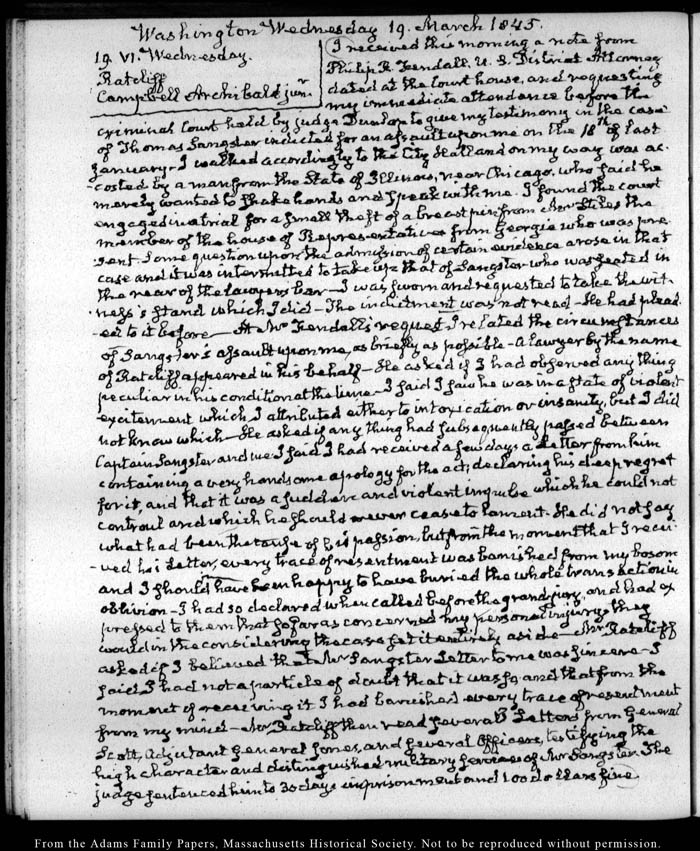 Washington Wednesday 19. March 1845.
19. VI. Wednesday.
Ratcliff
Campbell Archibald junr
I received this morning a note from
Philip R. Fendall, U. S. District Attorney
dated at the Court house, and requesting
my immediate attendance before the
criminal Court held by judge Dunlop to give my testimony in the case
of Thomas Sangster indicted for an assault upon me on the 18th of last
January - I walked accordingly to the City Hall and on my way was ac-
-costed by a man from the State of Illinois, near Chicago, who said he
merely wanted to shake hands and speak with me. I found the court
engaged in a trial for a small theft of a breast pin from Mr Stiles the
member of the house of Representatives from Georgia who was pre-
sent. Some question upon the admission of certain evidence arose in that
case and it was intermitted to take up that of Sangster who was seated in
the rear of the lawyers bar - I was sworn and requested to take the wit-
ness's stand which I did - The indictment was not read - He had plead-
-ed to it before - At Mr Fendall's request I related the circumstances
of Sangster's assault upon me, as briefly as possible - a lawyer by the name
of Ratcliff appeared in his behalf - He asked if I had observed any thing
peculiar in his condition at the time - I said I saw he was in a state of violent
excitement which I attributed either to intoxication or insanity, but I did
not know which - He asked if any thing had subsequently passed between
Captain Sangster and me. I said I had received a few days a letter from him
containing a very handsome apology for the act; declaring his deep regret
for it, and that it was a sudden and violent impulse which he could not
controul and which he should never cease to lament. He did not say
what had been the cause of his passion, but from the moment that I recei-
-ved his letter, every trace of resentment was banished from my bosom
and I should have been happy to have buried the whole transaction in
oblivion - I had so declared when called before the grand jury, and had ex
pressed to them that so far as concerned my personal injury they
would in the considering the case set it entirely aside - Mr Ratcliff
asked if I believed that Mr Sangster Letter to me was sincere - I
said I had not a particle of doubt that it was so, and that from the
moment of receiving it I had banished every trace of resentment
from my mind - Mr Ratcliff then read several Letters from General
Scott, Adjutant General Jones, and several Officers, testifying the
high character and distinguished military services of Mr Sangster. The
judge sentenced him to 30 days imprisonment and 100 dollars fine.
From the Adams Family Papers, Massachusetts Historical Society. Not to be reproduced without permission.